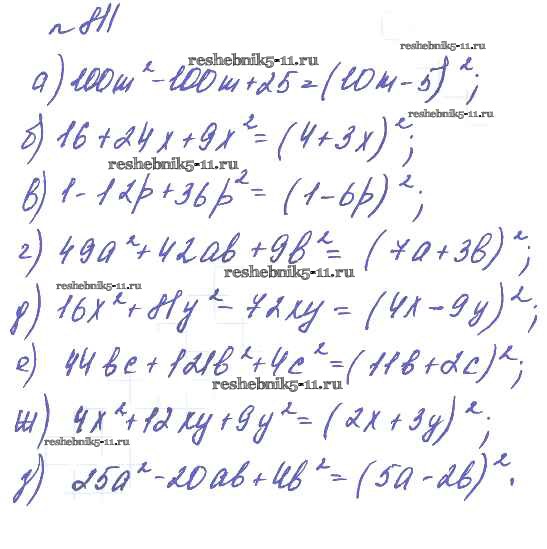 № 811
reshebnik5-11.ru
reshebnik5-11.ru
а) 100m² - 100m + 25 = (10m - 5)²;
reshebnik5-11.ru
б) 16 + 24x + 9x² = (4 + 3x)²;
reshebnik5-11.ru
в) 1 - 12p + 36p² = (1 - 6p)²;
г) 49a² + 42ab + 9b² = (7a + 3b)²;
reshebnik5-11.ru
reshebnik5-11.ru
д) 16x² + 81y² - 72xy = (4x - 9y)²;
е) 44bc + 121b² + 4c² = (11b + 2c)²;
reshebnik5-11.ru
ж) 4x² + 12xy + 9y² = (2x + 3y)²;
reshebnik5-11.ru
з) 25a² - 20ab + 4b² = (5a - 2b)².